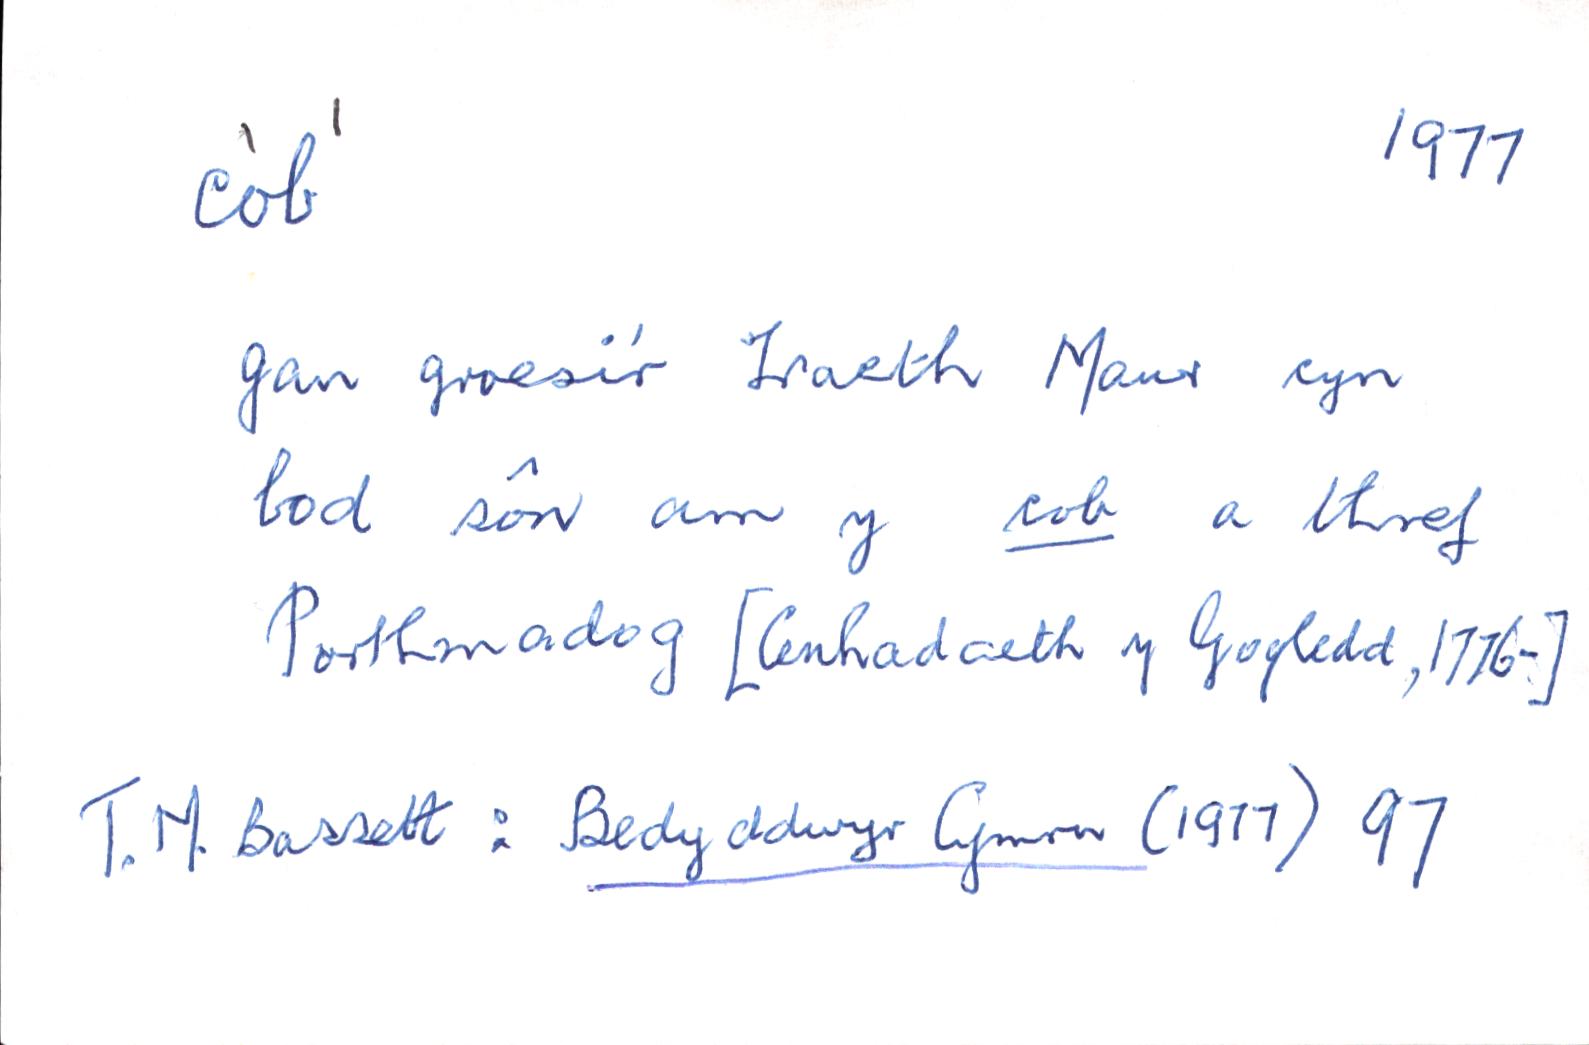 còb¹ 1977
gan groesi'r Traeth Mawr cyn
bod sôn am y cob a thref
Porthmadog [Cenhadaeth y Gogledd, 1776-]
T. M. Bassett : Bedyddwyr Cymru (1977) 97